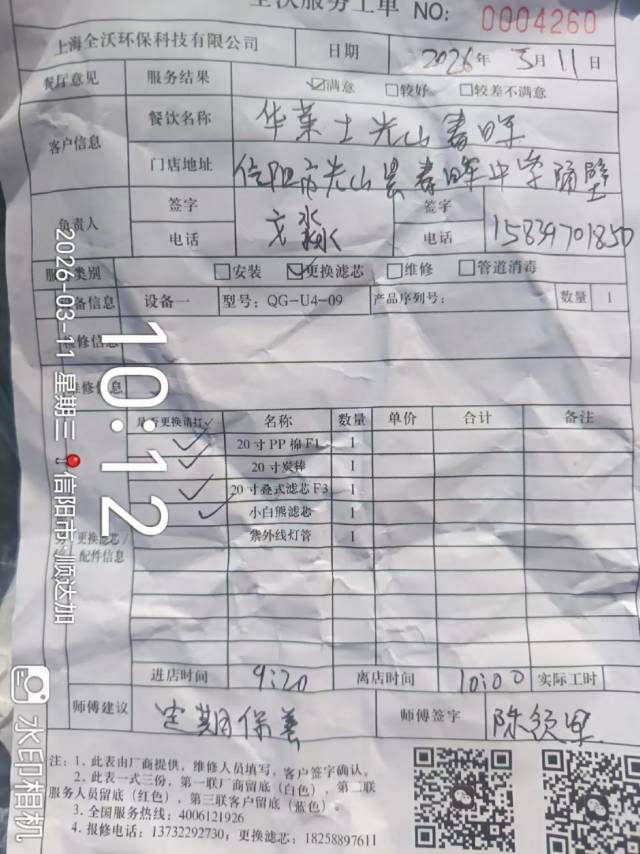 全沃服务工单 NO: 0004260
上海全沃环保科技有限公司 日期 2026年 3月 11日
餐厅意见 服务结果 ☑满意 □较好 □较差不满意
客户信息 餐饮名称 华莱士光山春晖
门店地址 信阳市光山县春晖中学隔壁
负责人 签字 签字
电话 电话 15839701850
类别 □安装 ☑更换滤芯 □维修 □管道消毒
备信息 设备一 型号: QG-U4-09 产品序列号: 数量 1
修信息
修信息
是否更换请打✓ 名称 数量 单价 合计 备注
✓ 20寸PP棉F1 1
✓ 20寸炭棒 1
✓ 20寸叠式滤芯F3 1
✓ 小白熊滤芯 1
紫外线灯管 1
更换滤芯/
配件信息
进店时间 9:20 离店时间 10:00 实际工时
师傅建议 定期保养 师傅签字
注: 1. 此表由厂商提供, 维修人员填写, 客户签字确认。
2. 此表一式三份, 第一联厂商留底 (白色), 第二联
服务人员留底 (红色), 第三联客户留底 (蓝色)。
3. 全国服务热线: 4006121926
4. 报修电话: 13732292730; 更换滤芯: 18258897611
10:12
2026-03-11 星期三
信阳市·顺达加
水印相机